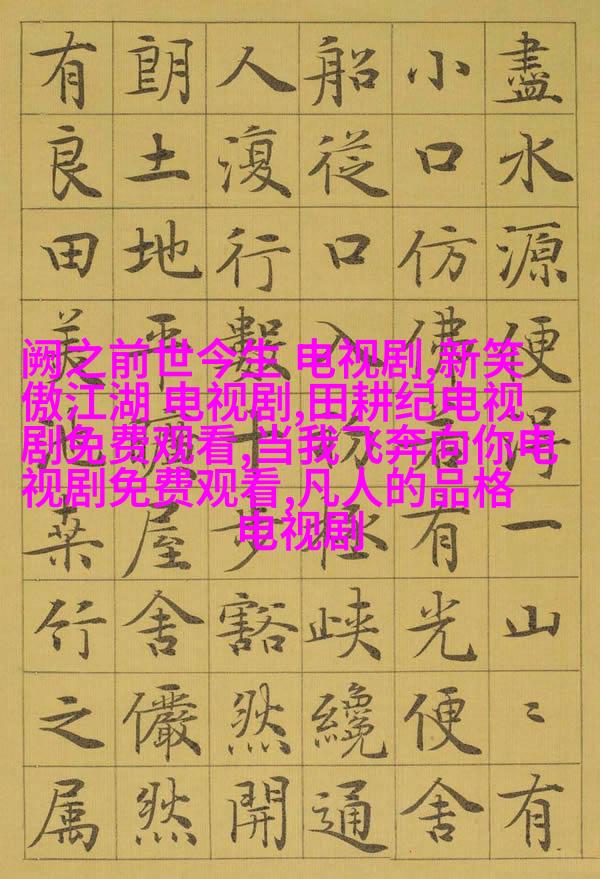 盡水源便得一山〻有
小口仿佛若有光便舍
船從口入初極峽纔通
人復行數十步豁然開
朗土地平曠屋舍儼然
有良田美池桑竹之属
阙之前世今生 电视剧,新笑
傲江湖 电视剧,田耕纪电视
剧免费观看,当我飞奔向你电
视剧免费观看,凡人的品格
电视剧